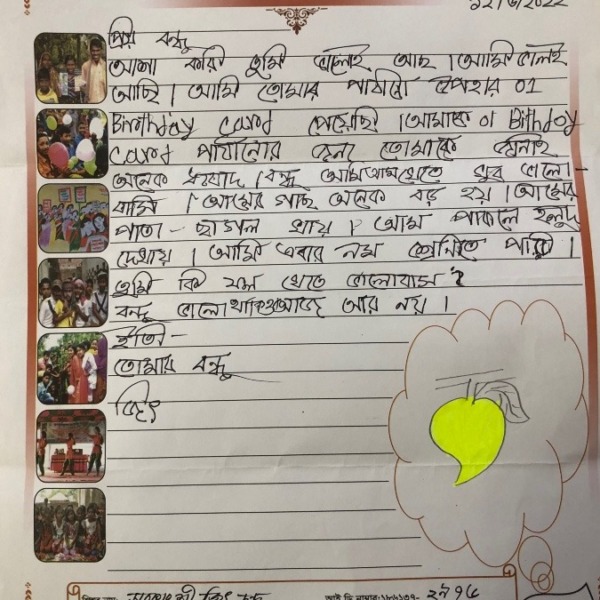 ১২/৬/২০২২
প্রিয় বন্ধু
আশা করি তুমি ভালোই আছ। আমি ভালই
আছি। আমি তোমার পাঠানো উপহার 01
Birthday Card পেয়েছি। আমাকে 01 Bithday
Card পাঠানোর জন্য তোমাকে জানাই
অনেক ধন্যবাদ। বন্ধু আমি আম খেতে খুব ভালো-
বাসি। আমের গাছ অনেক বড় হয়। আমের
পাতা ছাগল খায়। আম পাকলে হলুদ
দেখায়। আমি এবার নবম শ্রেণিতে পড়ি।
তুমি কি ফল খেতে ভালোবাস?
বন্ধু ভালো থাকিও আজ আর নয়।
ইতি-
তোমার বন্ধু
জিৎ
আই ডি নাম্বার: